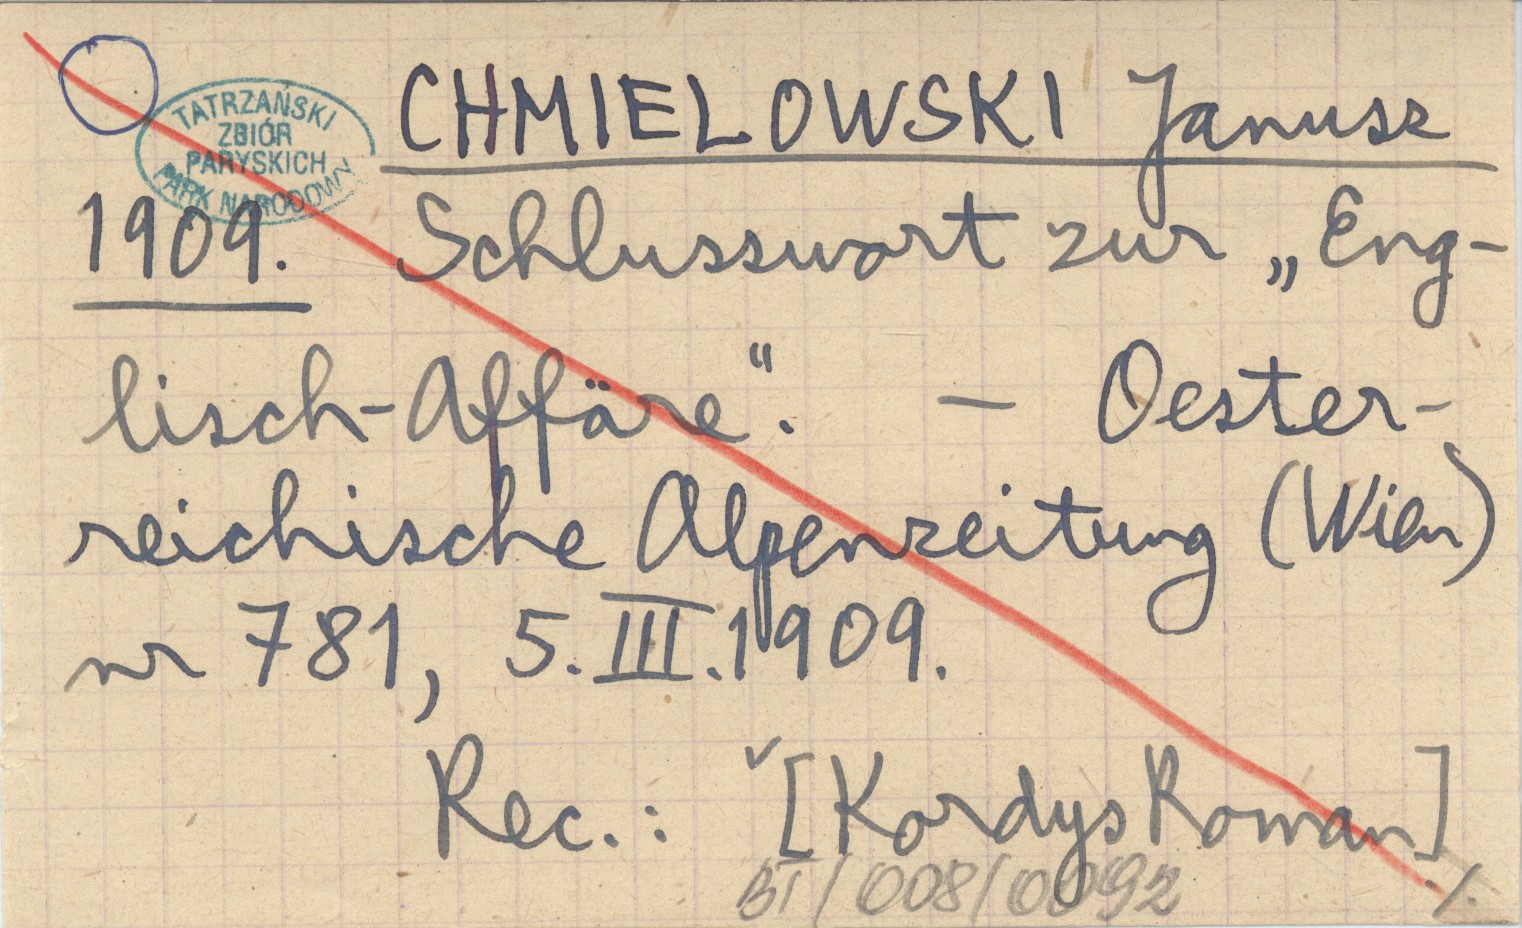 TATRZAŃSKI
ZBIÓR
PARYSKICH
PARK NARODOWY
CHMIELOWSKI Janusz
1909. Schlusswort zur „Eng-
lisch-Affäre“. — Oester-
reichische Alpenzeitung (Wien)
nr 781, 5.III.1909.
Rec.: ˇ[Kordys Roman]
BT/008/0092 ./.